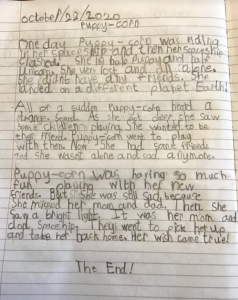 october/22/2020
Puppy-corn
One day Puppy-corn was riding
in her spaceship and then her spaceship
crashed. She is half Puppy and half
unicorn. She was lost and all alone.
She didnt have any friends. She
landed on a different planet Earth!
All of a sudden Puppy-corn heard a
strange sound. As she got close she saw
some children playing. She wanted to be
their friend. Puppy-corn went to play
with them. Now she had some friends
and she wasnt alone and sad anymore.
Puppy-corn was having so much
fun playing with her new
friends. But she was still sad because
she missed her mom and dad. Then she
saw a bright light. It was her mom and
dads spaceship. They went to pick her up
and take her back home. Her wish came true!
The End!